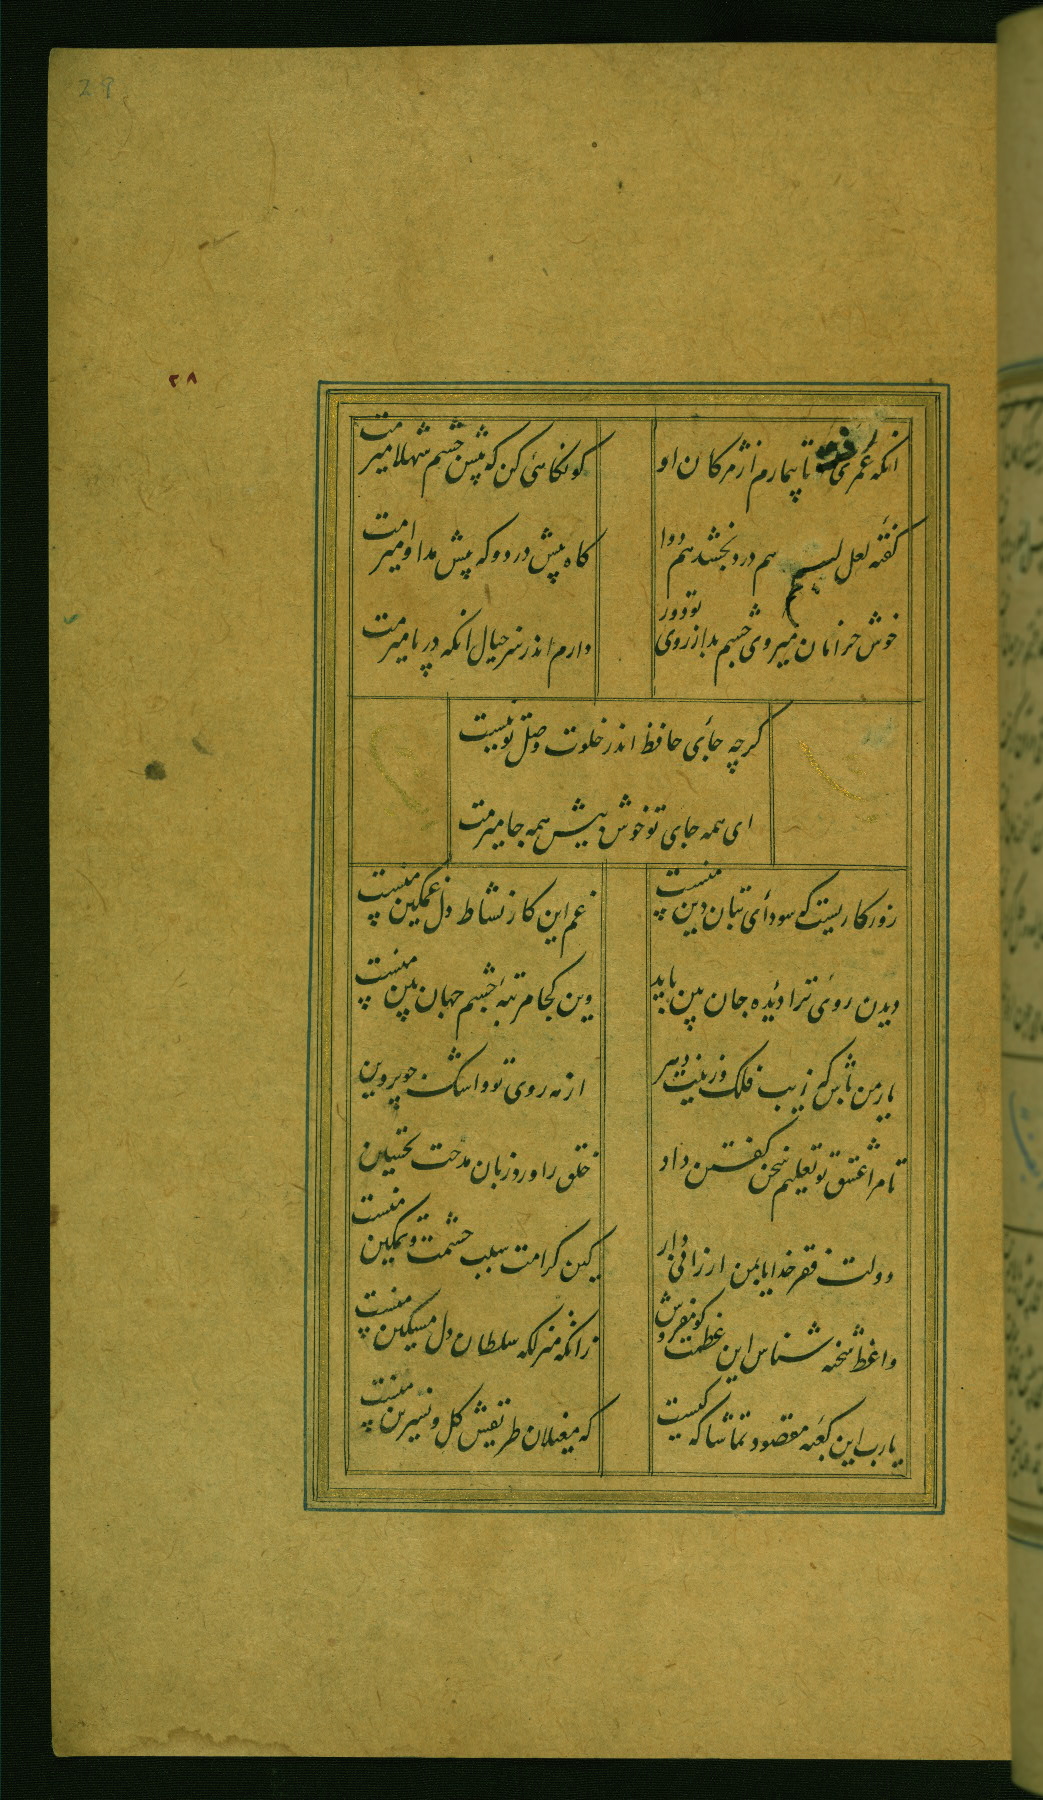 29
٢٨
انکه عمری رفت تا بیمارم از مژکان او کو نکاهی کن که پیش چشم شهلا میرمت
کفته لعل لبم هم درد بخشد هم دوا کاه پیش درد و که پیش مداوا میرمت
خوش خرامان میروی چشم بد از روی تو دور دارم اندر سر خیال انکه در پا میرمت
کرچه جای حافظ اندر خلوت وصل تو نیست
ای همه جای تو خوش پیش همه جا میرمت
روزکاریست که سودای بتان دین منست غم این کار نشاط دل غمکین منست
دیدن روی ترا دیده جان بین باید وین کجا مرتبه چشم جهان بین منست
یار من باش که زیب فلک و زینت دهر از مه روی تو و اشک چو پروین
تا مرا عشق تو تعلیم سخن کفتن داد خلق را ورد زبان مدحت تحسین
دولت فقر خدایا بمن ارزانی دار کین کرامت سبب حشمت و تمکین منست
واعظ شحنه شناس این عظمت کو مفروش زانکه منزلکه سلطان دل مسکین منست
یارب این کعبه مقصود تماشاکه کیست که مغیلان طریقش کل و نسرین منست